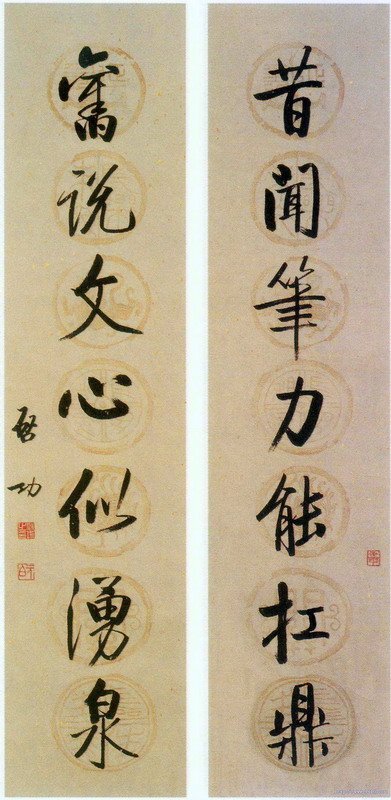 昔聞筆力能扛鼎
舊說文心似湧泉
啟功